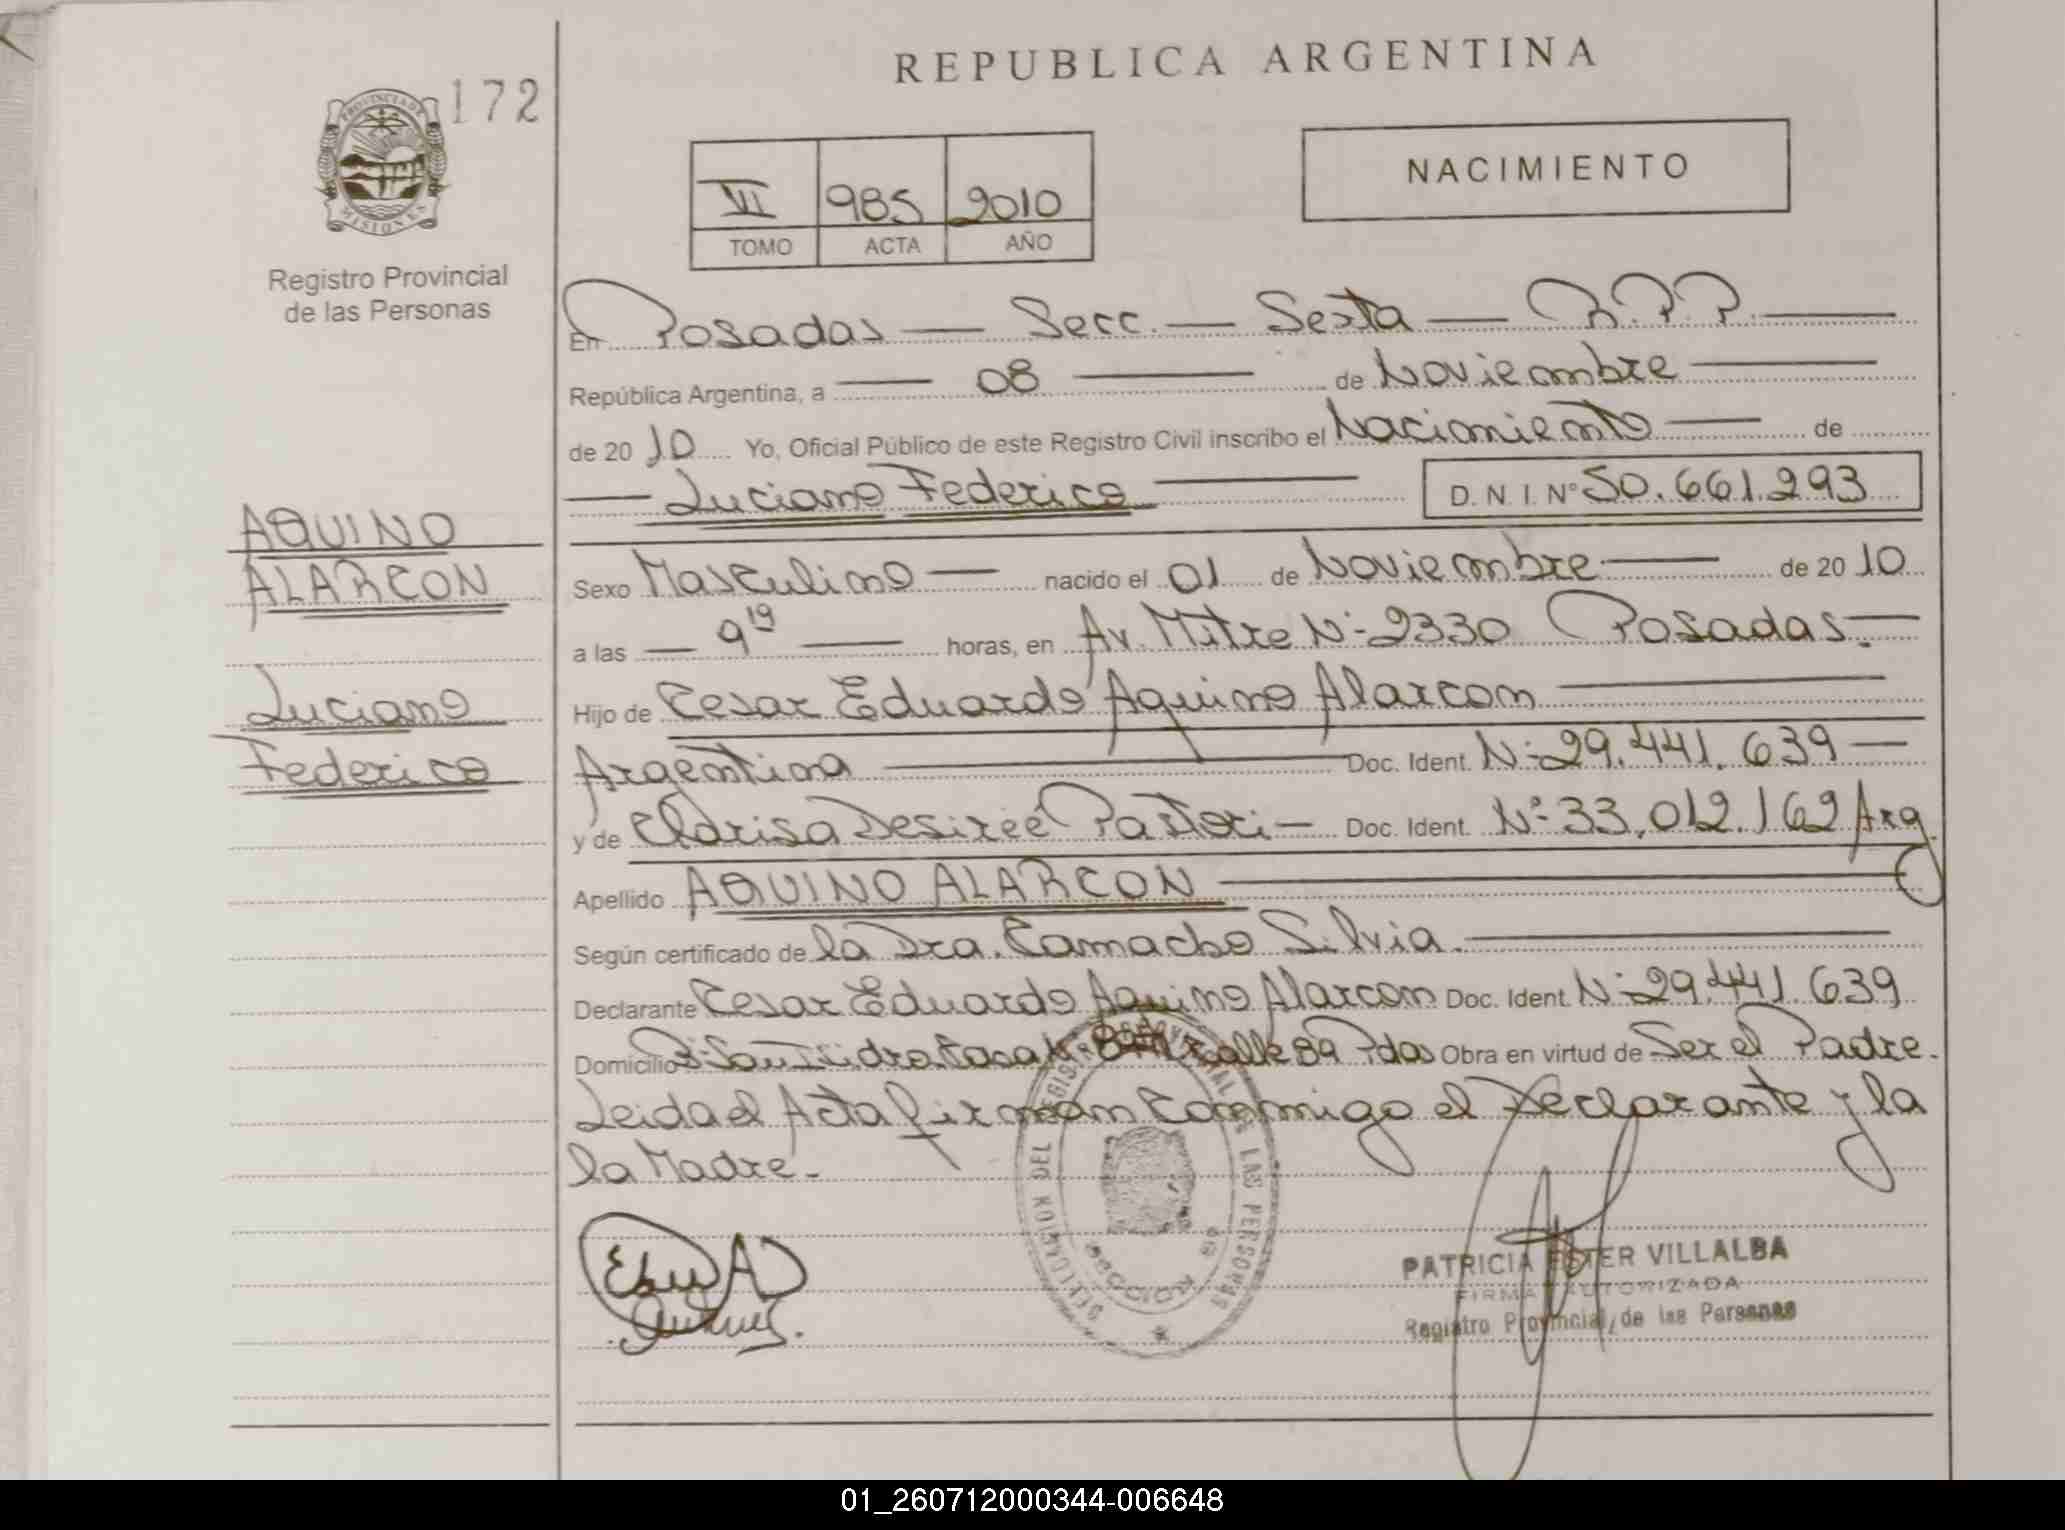 REPUBLICA ARGENTINA
172
PROVINCIA DE
MISIONES
Registro Provincial
de las Personas
VI 985 2010
TOMO ACTA AÑO
NACIMIENTO
En Posadas — Secc. — Sexta — R.P.P.
República Argentina, a 08 de Noviembre
de 2010 Yo, Oficial Público de este Registro Civil inscribo el Nacimiento de
Luciano Federico D.N.I. N° 50.661.293
AQUINO
ALARCON
Luciano
Federico
Sexo Masculino nacido el 01 de Noviembre de 2010
a las 9 19 horas, en Av. Mitre N° 2330 Posadas.
Hijo de Cesar Eduardo Aquino Alarcon
Argentina Doc. Ident. N° 29.441.639
y de Clarisa Desireé Pastori Doc. Ident. N° 33.012.162 Arg.
Apellido AQUINO ALARCON
Según certificado de la Dra. Camacho Silvia.
Declarante Cesar Eduardo Aquino Alarcon Doc. Ident. N° 29.441.639
Domicilio B° San Isidro Casa N° calle 89 Pdas Obra en virtud de Ser el Padre.
Leida el Acta firman Conmigo el Declarante y la
la Madre.
PATRICIA ESTER VILLALBA
FIRMA AUTORIZADA
Registro Provincial de las Personas
01_260712000344-006648